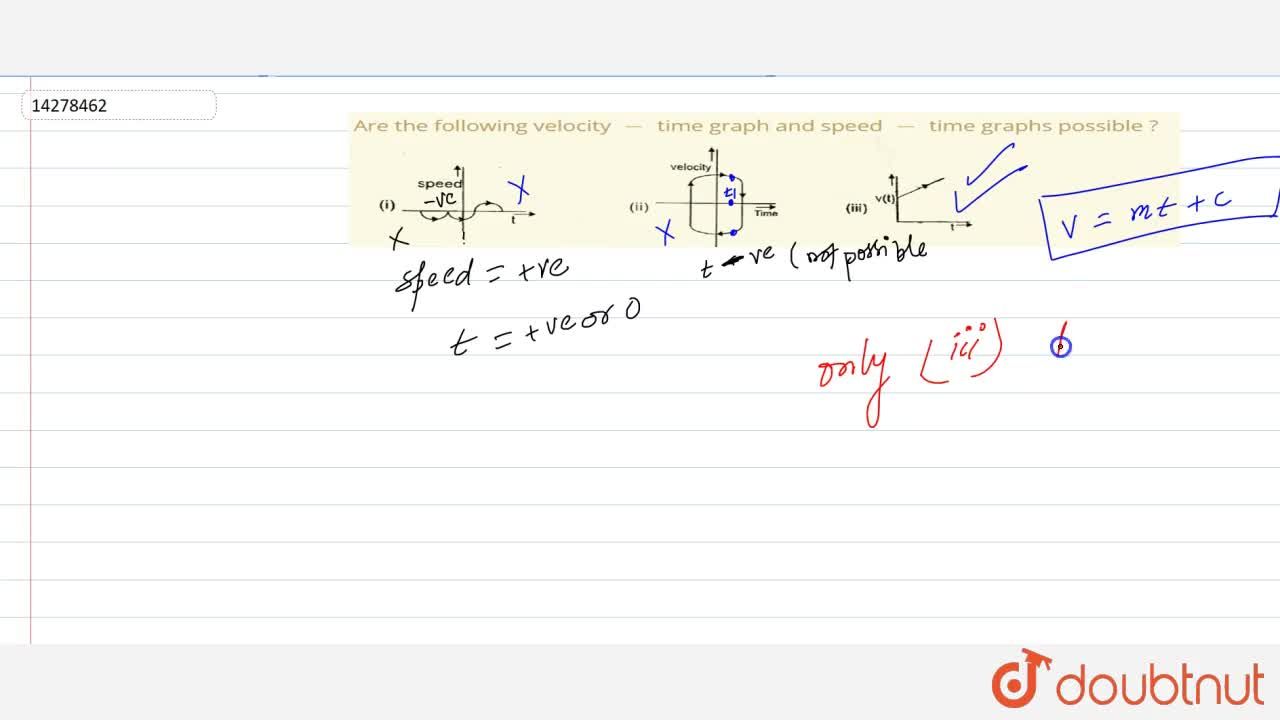 14278462
Are the following velocity — time graph and speed — time graphs possible ?
(i) speed -ve t X X
(ii) velocity t1 Time X
(iii) v(t) t
v = mt + c
speed = +ve
t = +ve or 0
t -ve (not possible
only (iii)
doubtnut